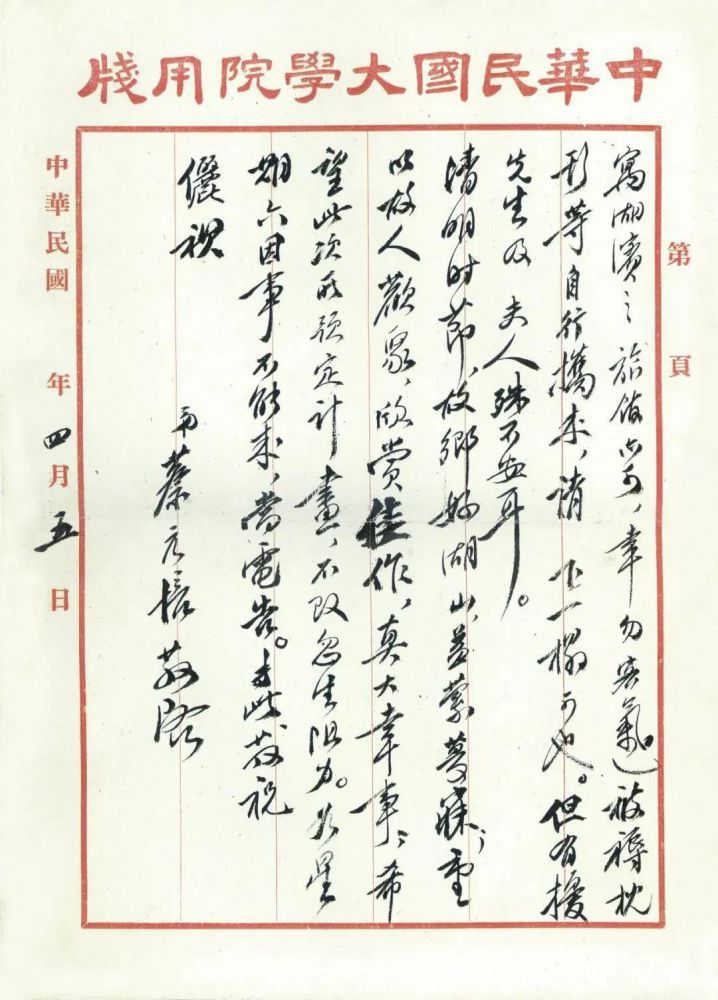 中華民國大學院用牋
第 頁
寓湖濱之旅館亦可，幸勿客氣。被褥枕
形等自行攜來，請下一榻可也。但有擾
先生及 夫人殊不安耳。
清明時節，故鄉好湖山，益縈夢寐；重
以故人歡聚，欣賞佳作，真大幸事；希
望此次所預定計畫，不致忽生阻力。如星
期六因事不能來，當電告。專此，敬祝
儷祺
弟蔡元培敬啓
中華民國 年四月五日